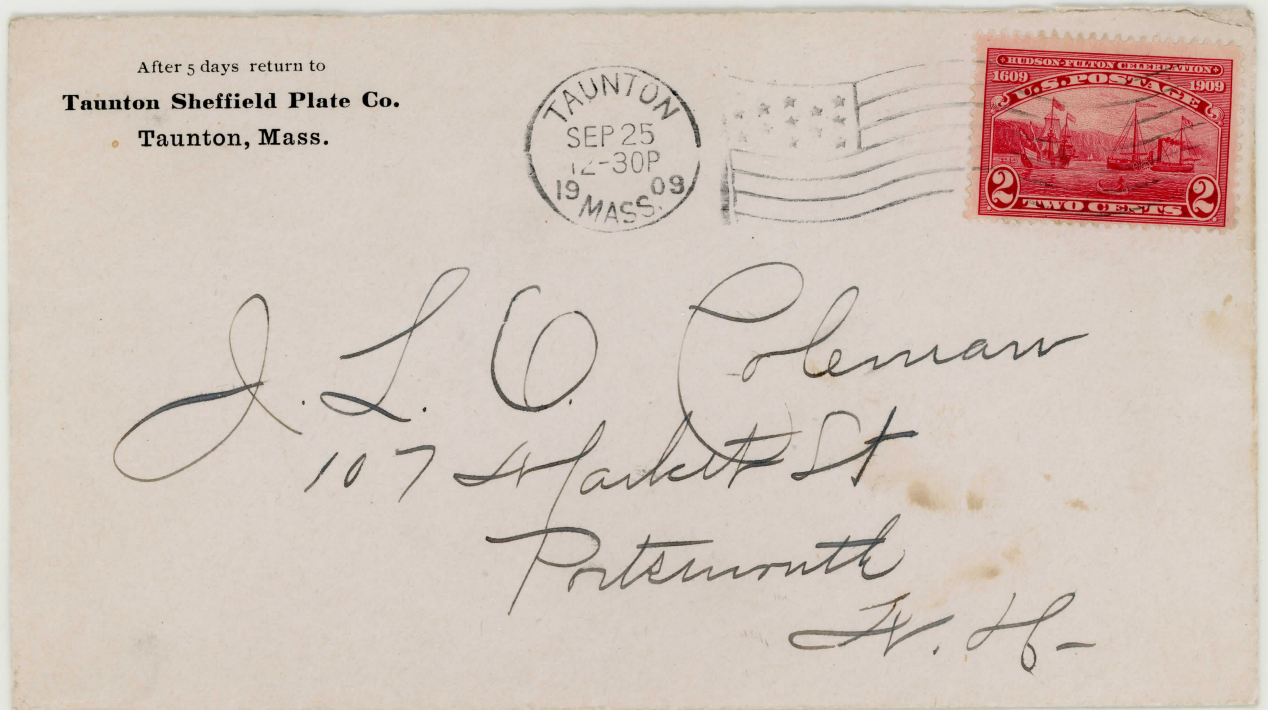 After 5 days return to
Taunton Sheffield Plate Co.
Taunton, Mass.
TAUNTON
SEP 25
12-30P
19 09
MASS.
HUDSON-FULTON CELEBRATION
1609 1909
U.S. POSTAGE
2 TWO CENTS 2
J. L. O. Coleman
107 Market St
Portsmouth
N. H-